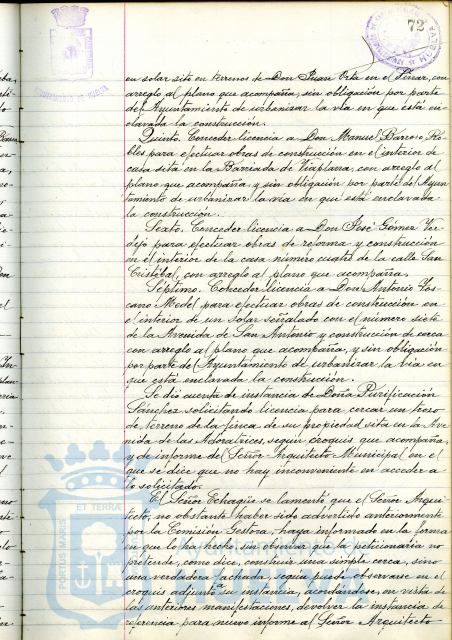 72
en solar sito en terrenos de Don Juan Orta en el Pinar, con
arreglo al plano que acompaña, sin obligación por parte
del Ayuntamiento de urbanizar la vía en que está en-
clavada la construcción.
Quinto. Conceder licencia a Don Manuel Barroso Ro-
bles para efectuar obras de construcción en el interior de
casa sita en la Barriada de Viaplana, con arreglo al
plano que acompaña y sin obligación por parte del Ayun-
tamiento de urbanizar la vía en que está enclavada
la construcción.
Sexto. Conceder licencia a Don José Gómez Ver-
dejo para efectuar obras de reforma y construcción
en el interior de la casa número cuatro de la calle San
Cristóbal, con arreglo al plano que acompaña.
Séptimo. Conceder licencia a Don Antonio Tos-
cano Medel para efectuar obras de construcción en
el interior de un solar señalado con el número siete
de la Avenida de San Antonio y construcción de cerca
con arreglo al plano que acompaña, y sin obligación
por parte del Ayuntamiento de urbanizar la vía en
que está enclavada la construcción.
Se dió cuenta de instancia de Doña Purificación
Sánchez solicitando licencia para cercar un trozo
de terreno de la finca de su propiedad sita en la Ave-
nida de las Adoratrices, según croquis que acompaña,
y de informe del Señor Arquitecto Municipal en el
que se dice que no hay inconveniente en acceder a
lo solicitado.
El Señor Echagüe se lamentó que el Señor Arqui-
tecto, no obstante haber sido advertido anteriormente
por la Comisión Gestora, haya informado en la forma
en que lo ha hecho sin observar que la peticionaria no
pretende, como dice, construir una simple cerca, sino
una verdadera fachada, según puede observarse en el
croquis adjunto a su instancia, acordándose, en vista de
las anteriores manifestaciones, devolver la instancia de
referencia para nuevo informe al Señor Arquitecto
PORTUS MARIS
ET TERRAE